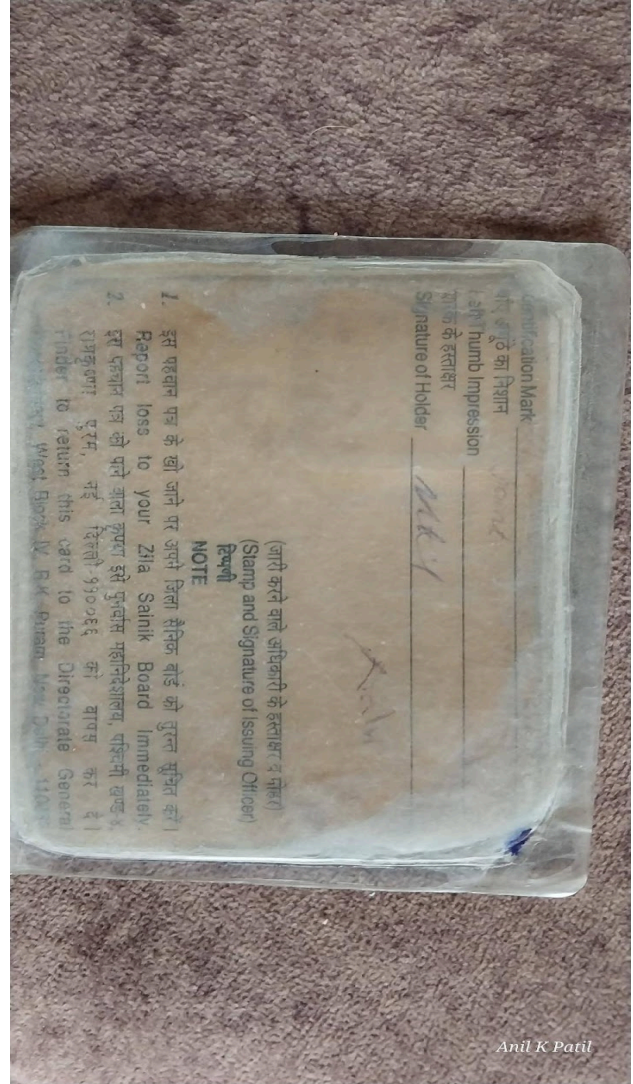 Identification Mark
बाएं अंगूठे का निशान
Left Thumb Impression
धारक के हस्ताक्षर
Signature of Holder
(जारी करने वाले अधिकारी के हस्ताक्षर व मोहर)
(Stamp and Signature of Issuing Officer)
टिप्पणी
NOTE
1. इस पहचान पत्र के खो जाने पर अपने जिला सैनिक बोर्ड को तुरन्त सूचित करें।
Report loss to your Zila Sainik Board Immediately.
2. इस पहचान पत्र को पाने वाला कृपया इसे पुनर्वास महानिदेशालय, पश्चिमी खण्ड-४
रामकृष्णा पुरम, नई दिल्ली-११००६६ को वापस कर दें।
Finder to return this card to the Directorate General
West Block IV, R.K. Puram New Delhi
Anil K Patil